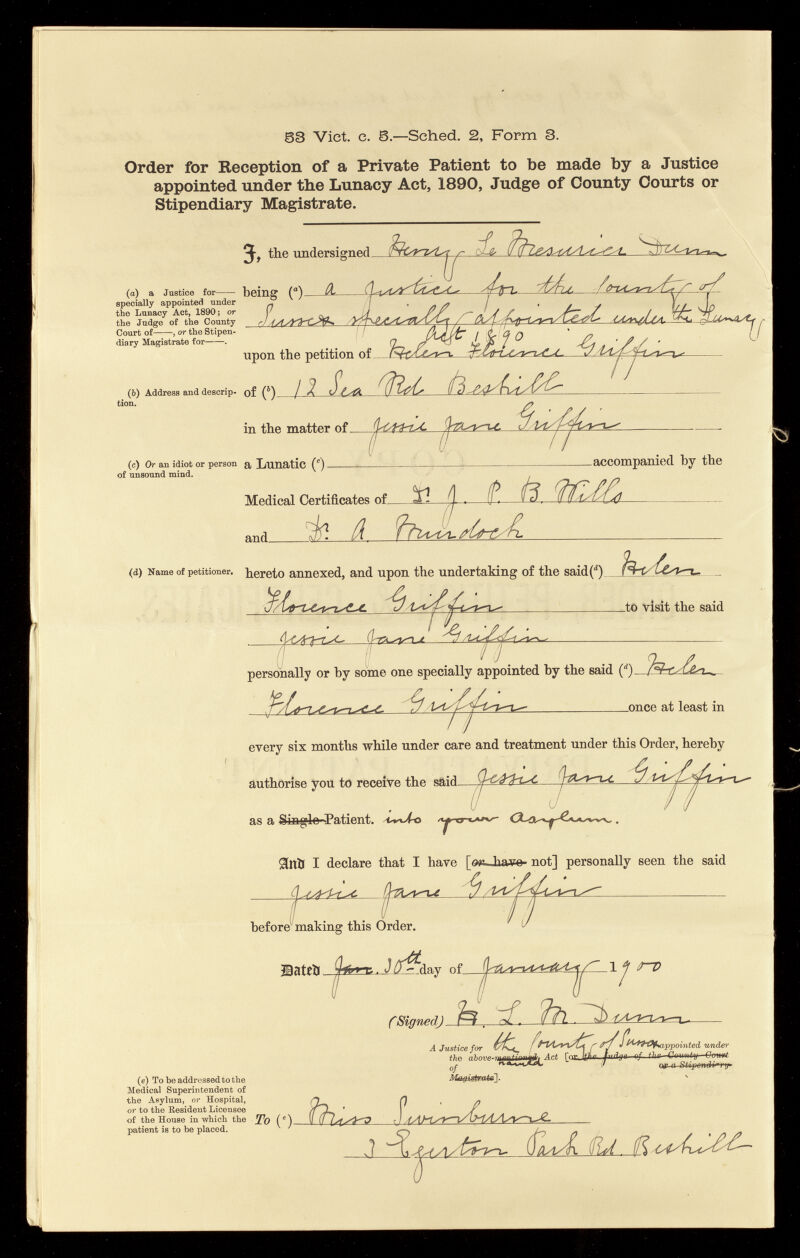 53 Vict. c. 5.—Sched. 2, Form 3.
Order for Reception of a Private Patient to be made by a Justice
appointed under the Lunacy Act, 1890, Judge of County Courts or
Stipendiary Magistrate.
I, the undersigned Henry Le Mesurier Dunn
(a) a Justice for——
specially appointed under
the Lunacy Act, 1890; or
the Judge of the County
Court of——, or the Stipen-
diary Magistrate for——.
being (a) a Justice for the County of
Sussex specially appointed under the Lunacy
Act 1890
upon the petition of Helen Florence Griffin
(b) Address and descrip-
tion.
of (b) 12 Sea Rd Bexhill
in the matter of Jessie Jane Griffin
(c) Or an idiot or person
of unsound mind.
a Lunatic (c) accompanied by the
Medical Certificates of Dr. J. P. B. Wills
and Dr. A. Murdoch
(d) Name of petitioner.
hereto annexed, and upon the undertaking of the said (d) Helen
Florence Griffin to visit the said
Jessie Jane Griffin
personally or by some one specially appointed by the said (d) Helen
Florence Griffin once at least in
every six months while under care and treatment under this Order, hereby
authorise you to receive the said Jessie Jane Griffin
as a Single Patient. into your Asylum.
And I declare that I have [or have not] personally seen the said
Jessie Jane Griffin
before making this Order.
Dated Jan. 30th day of January 1900
(Signed) H. L. M. Dunn
A Justice for the County of Sussex appointed under
the above-mentioned named Act [or the Judge of the County Court
of or a Stipendiary
Magistrate].
(e) To be addressed to the
Medical Superintendent of
the Asylum, or Hospital,
or to the Resident Licensee
of the House in which the
patient is to be placed.
To (e) Miss Swinburne
3 Egerton Park Rd. Bexhill